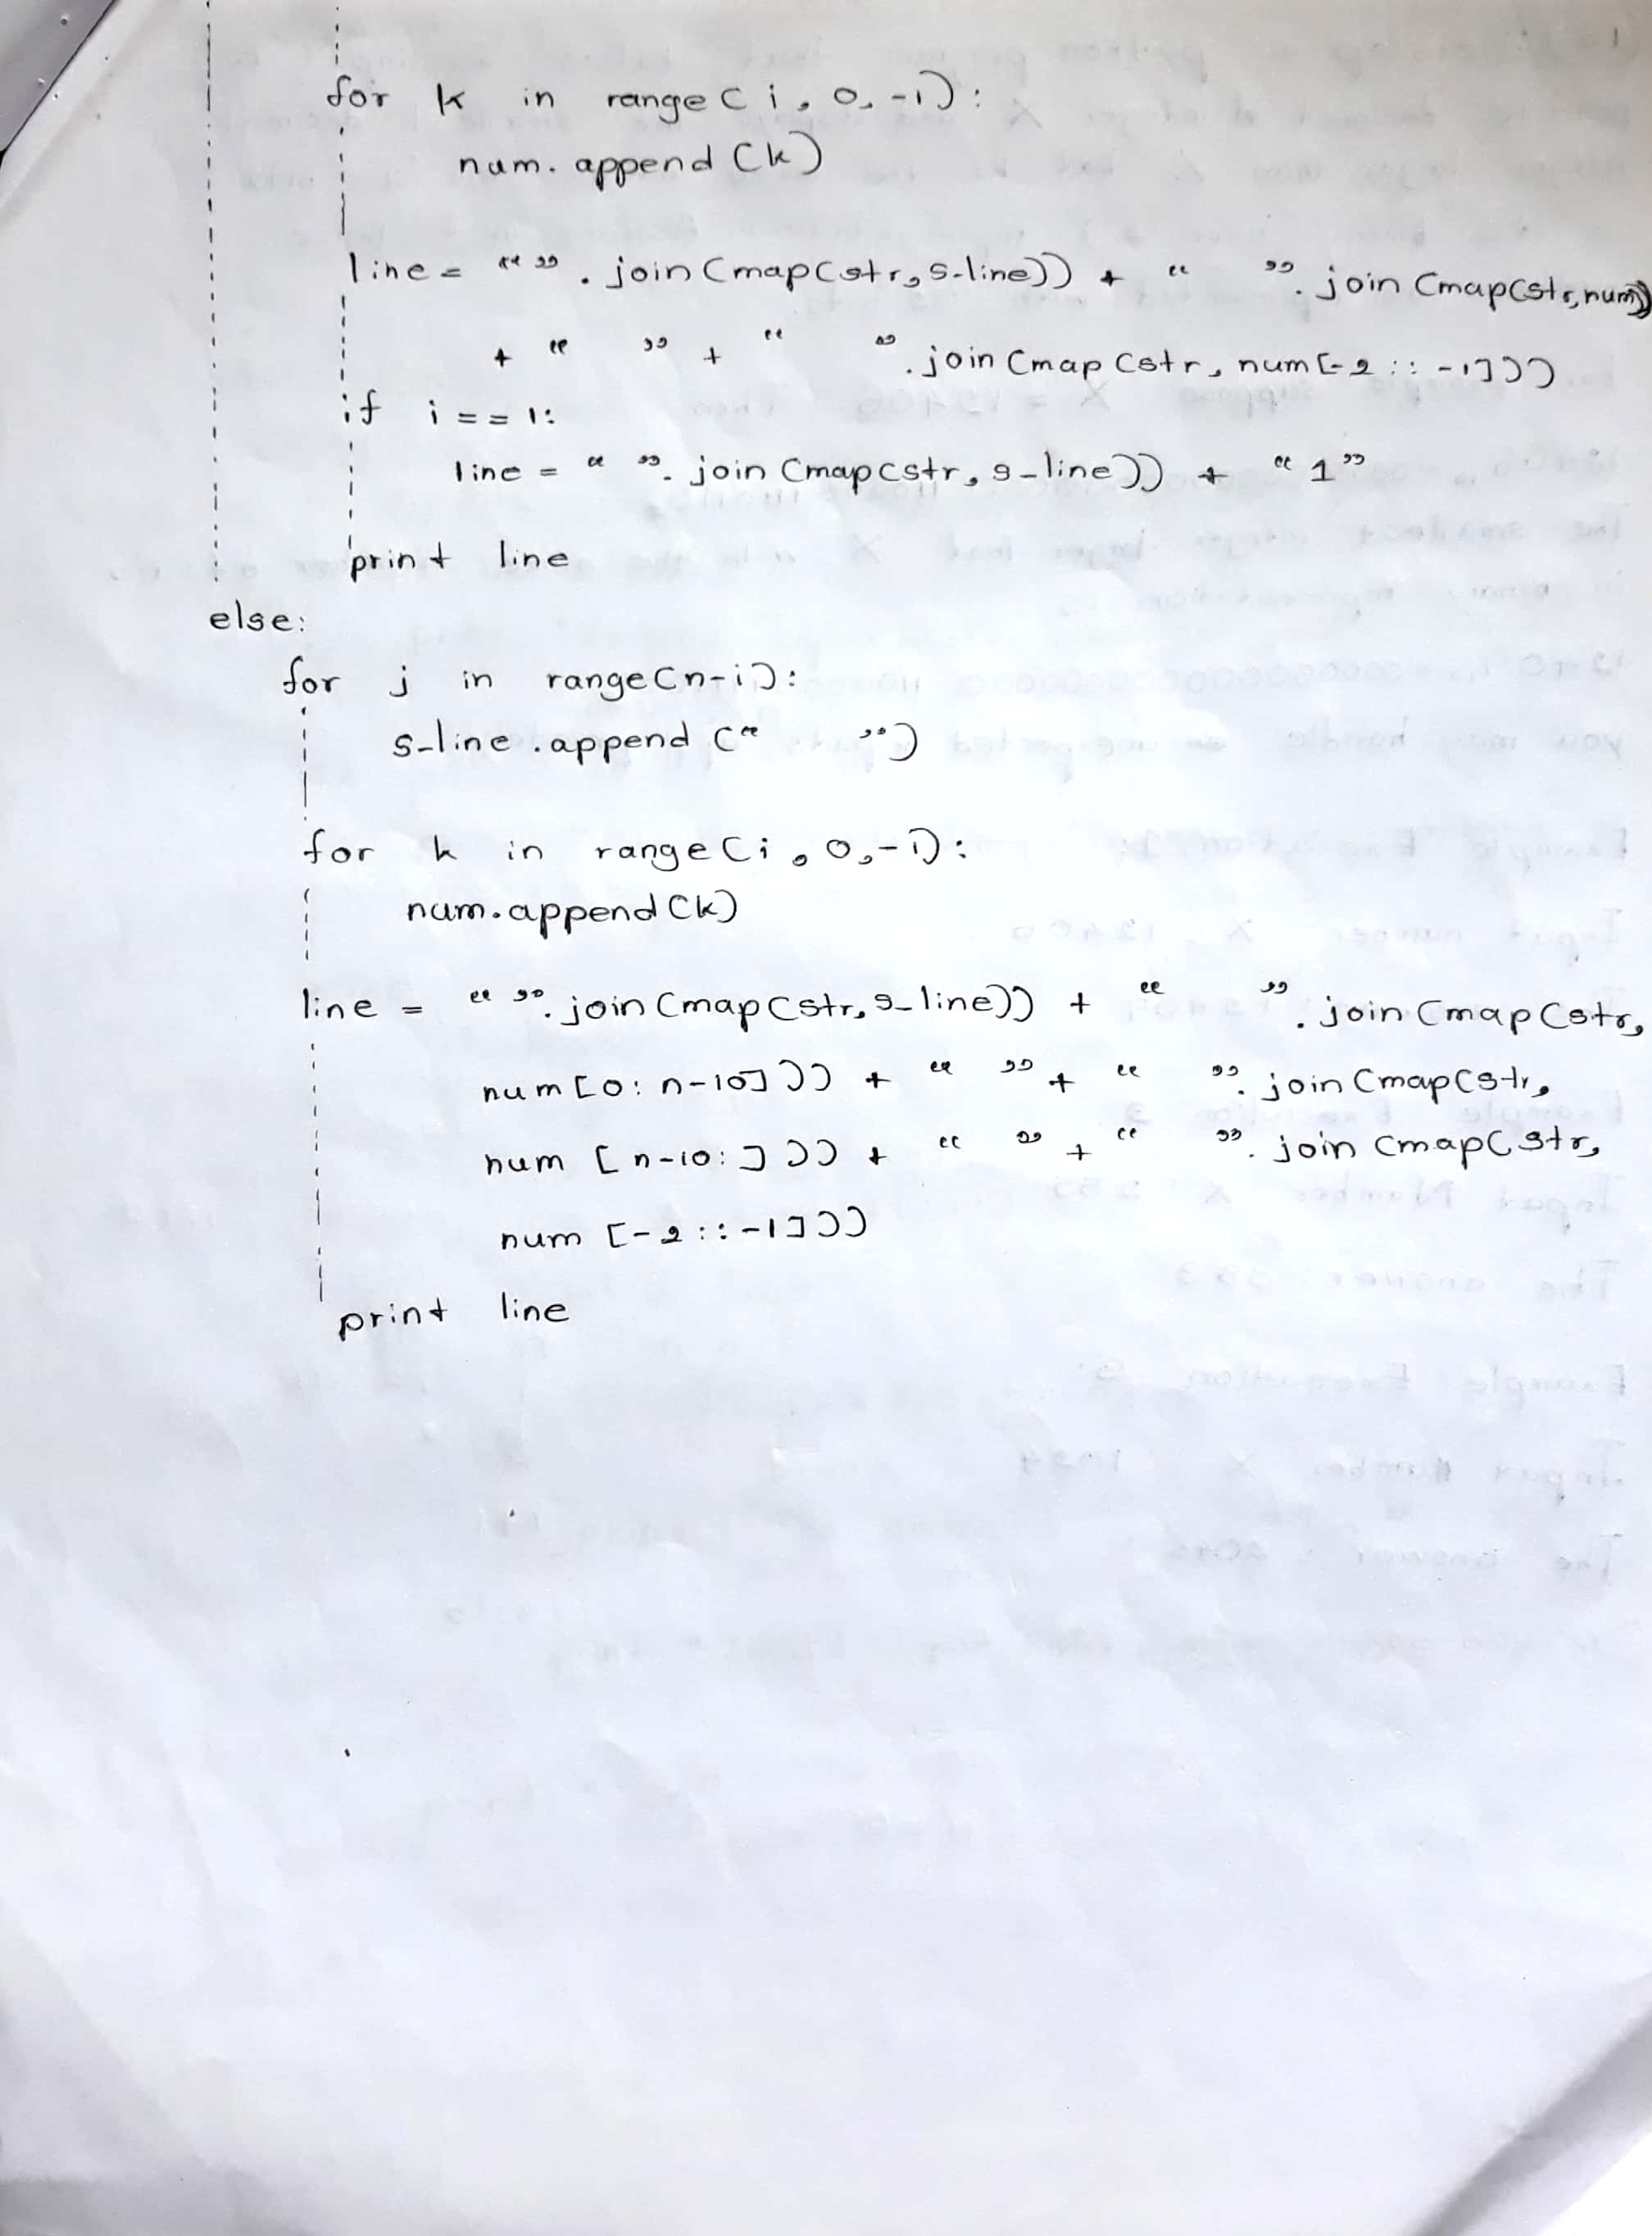 for k in range (i, 0, -1):
num. append (k)
line = "". join (map(str, s-line)) + "   ". join (map(str, num))
+ "   " + "   ". join (map (str, num [-2 :: -1]))
if i == 1:
line = " ". join (map(str, s-line)) + "1"
print line
else:
for j in range(n-i):
s-line .append ("   ")
for k in range (i, 0, -1):
num. append (k)
line = " ". join (map (str, s-line)) + "   ". join (map (str,
num [0: n-10])) + "   " + "   ". join (map (str,
num [n-10:])) + "   " + "   ". join (map( str,
num [-2 :: -1]))
print line